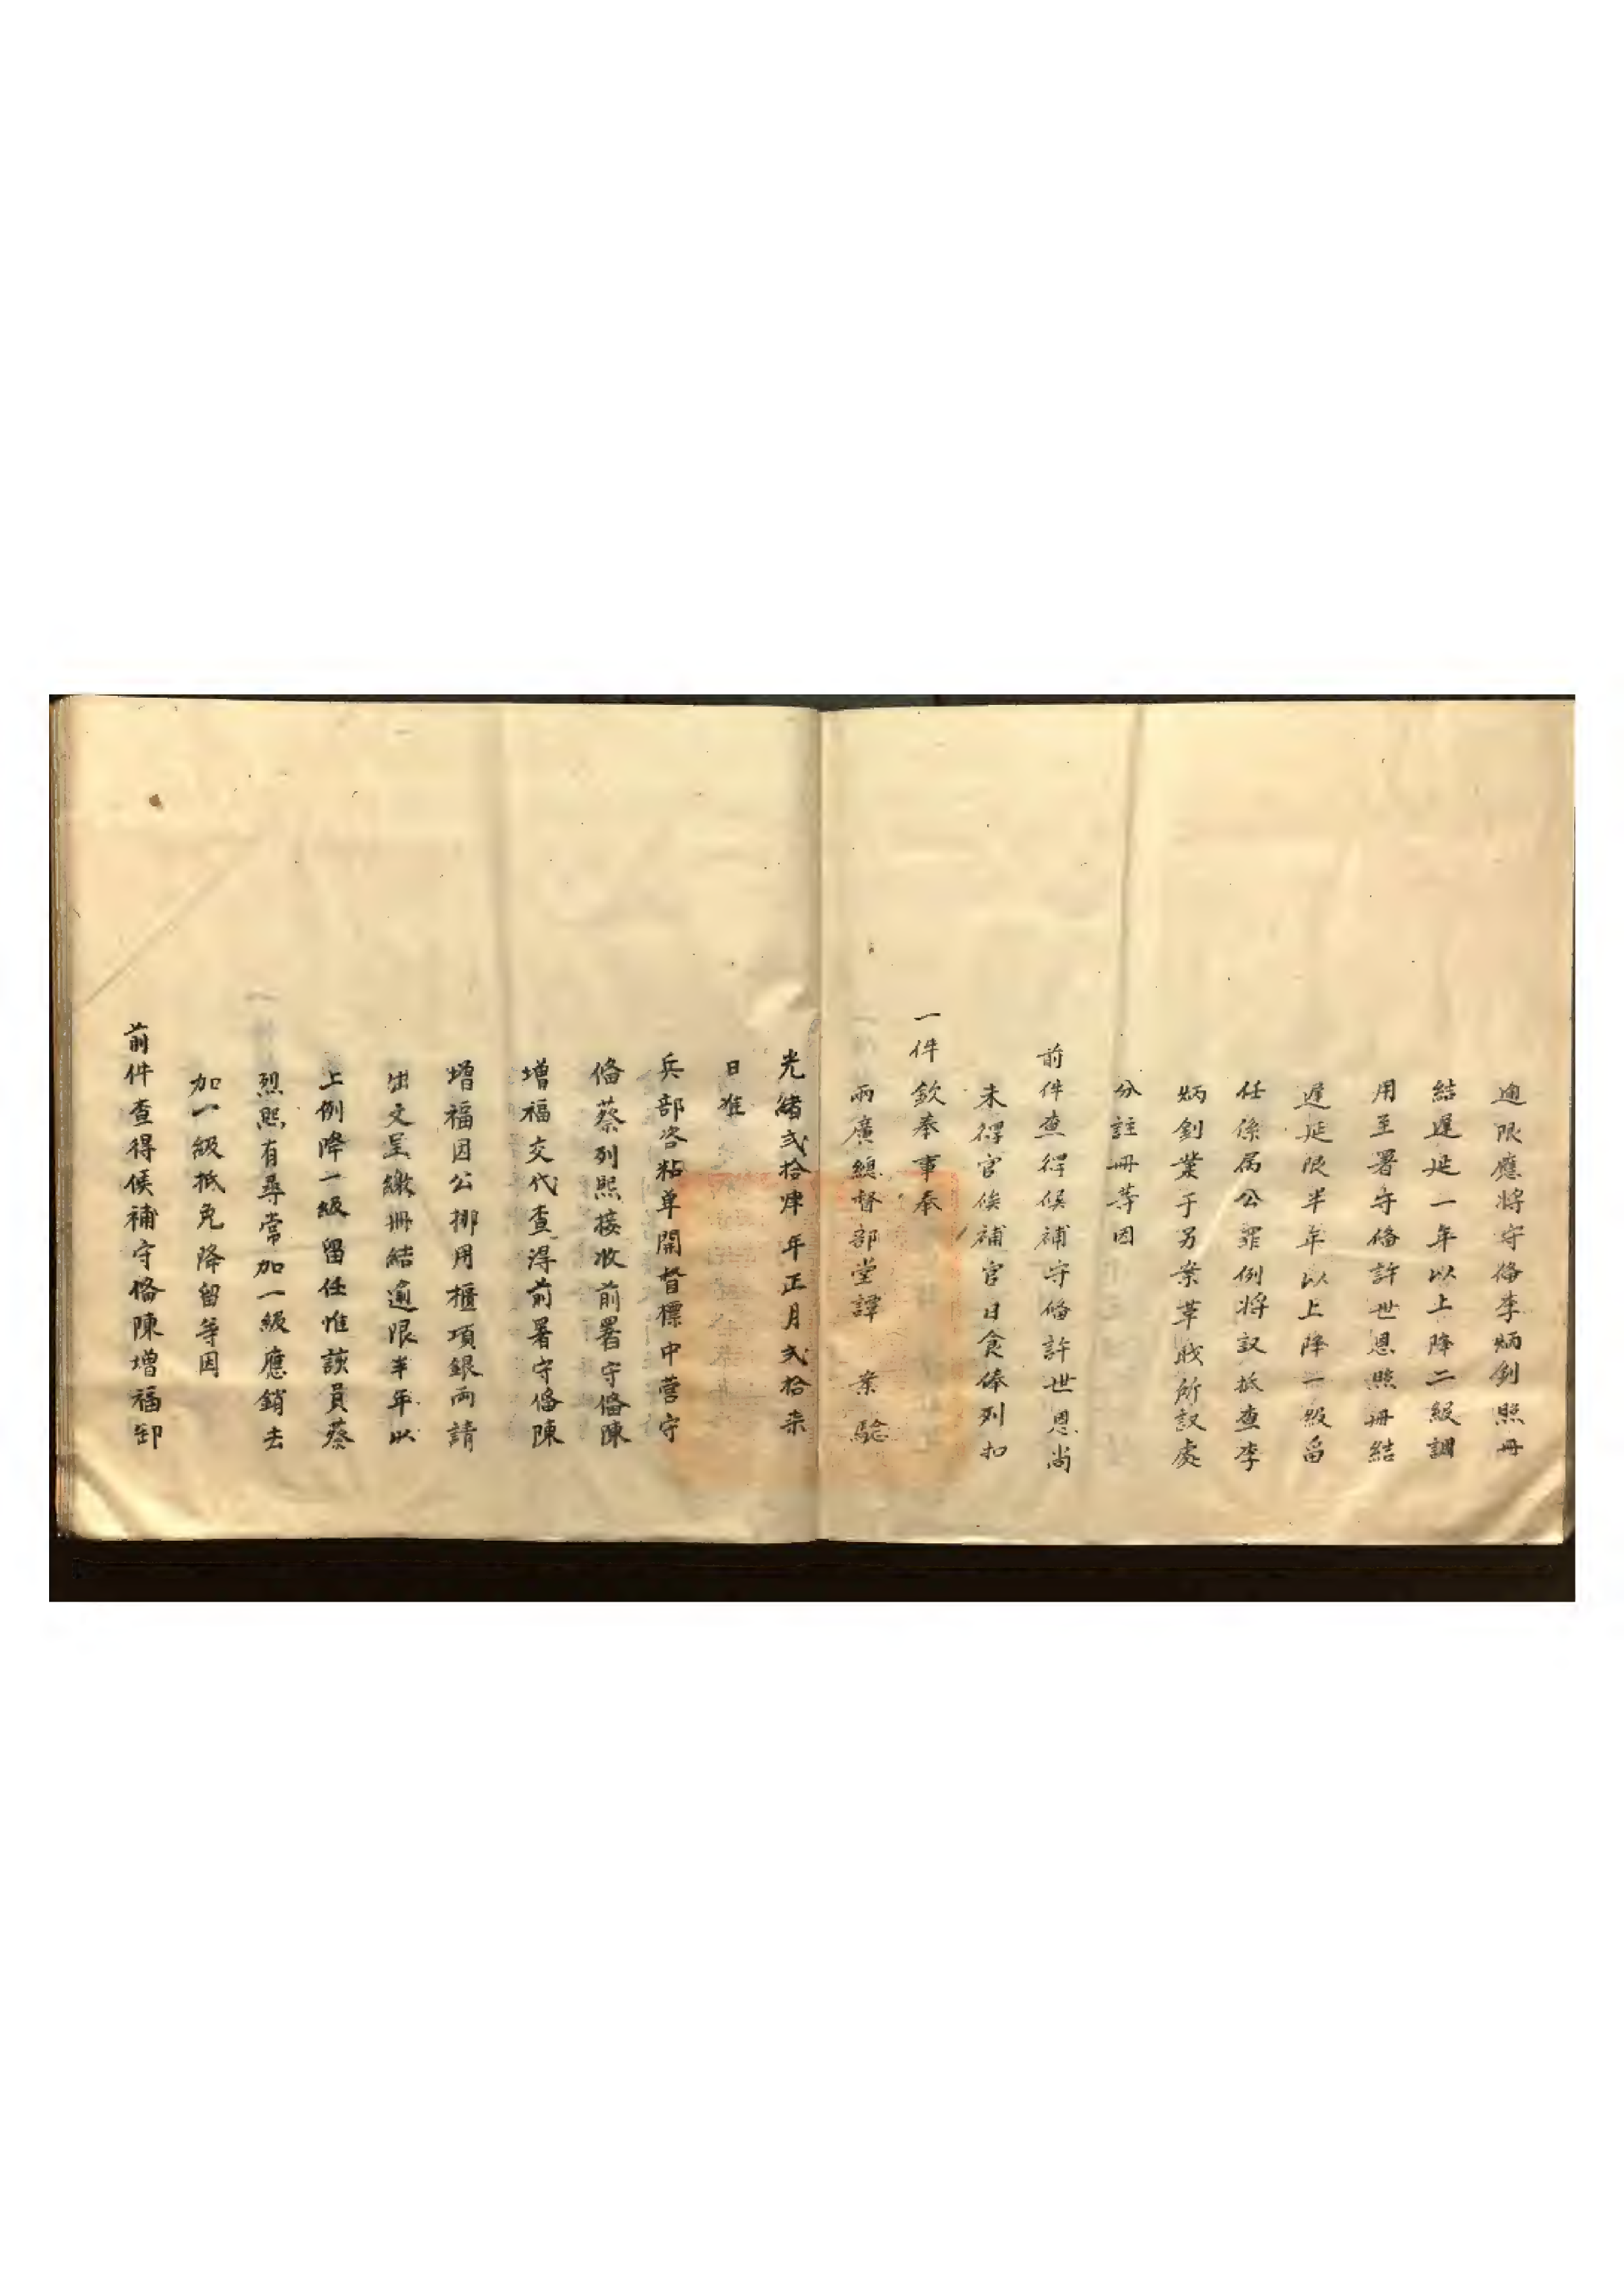 逾限應將守俻李炳釗照冊
結遲延一年以上降二級調
用至署守俻許世恩照冊結
遲延限半年以上降一級畄
任係属公罪例將议抵查李
炳釗業于另案革戝所议處
分註冊等因
前件查得候補守俻許世恩尚
未得官俟補官日食俸列扣
一件欽奉事奉
兩廣總督部堂譚　案驗
光緒弍拾肆年正月弍拾柒
日准
兵部咨粘单開督標中營守
俻蔡列熙接收前署守俻陳
增福交代查得前署守俻陳
增福因公挪用櫃項銀両請
出文呈繳冊結逾限半年以
上例降一級留任惟該員蔡
烈熙有尋常加一級應銷去
加一級抵免降留等因
前件查得候補守俻陳增福卸